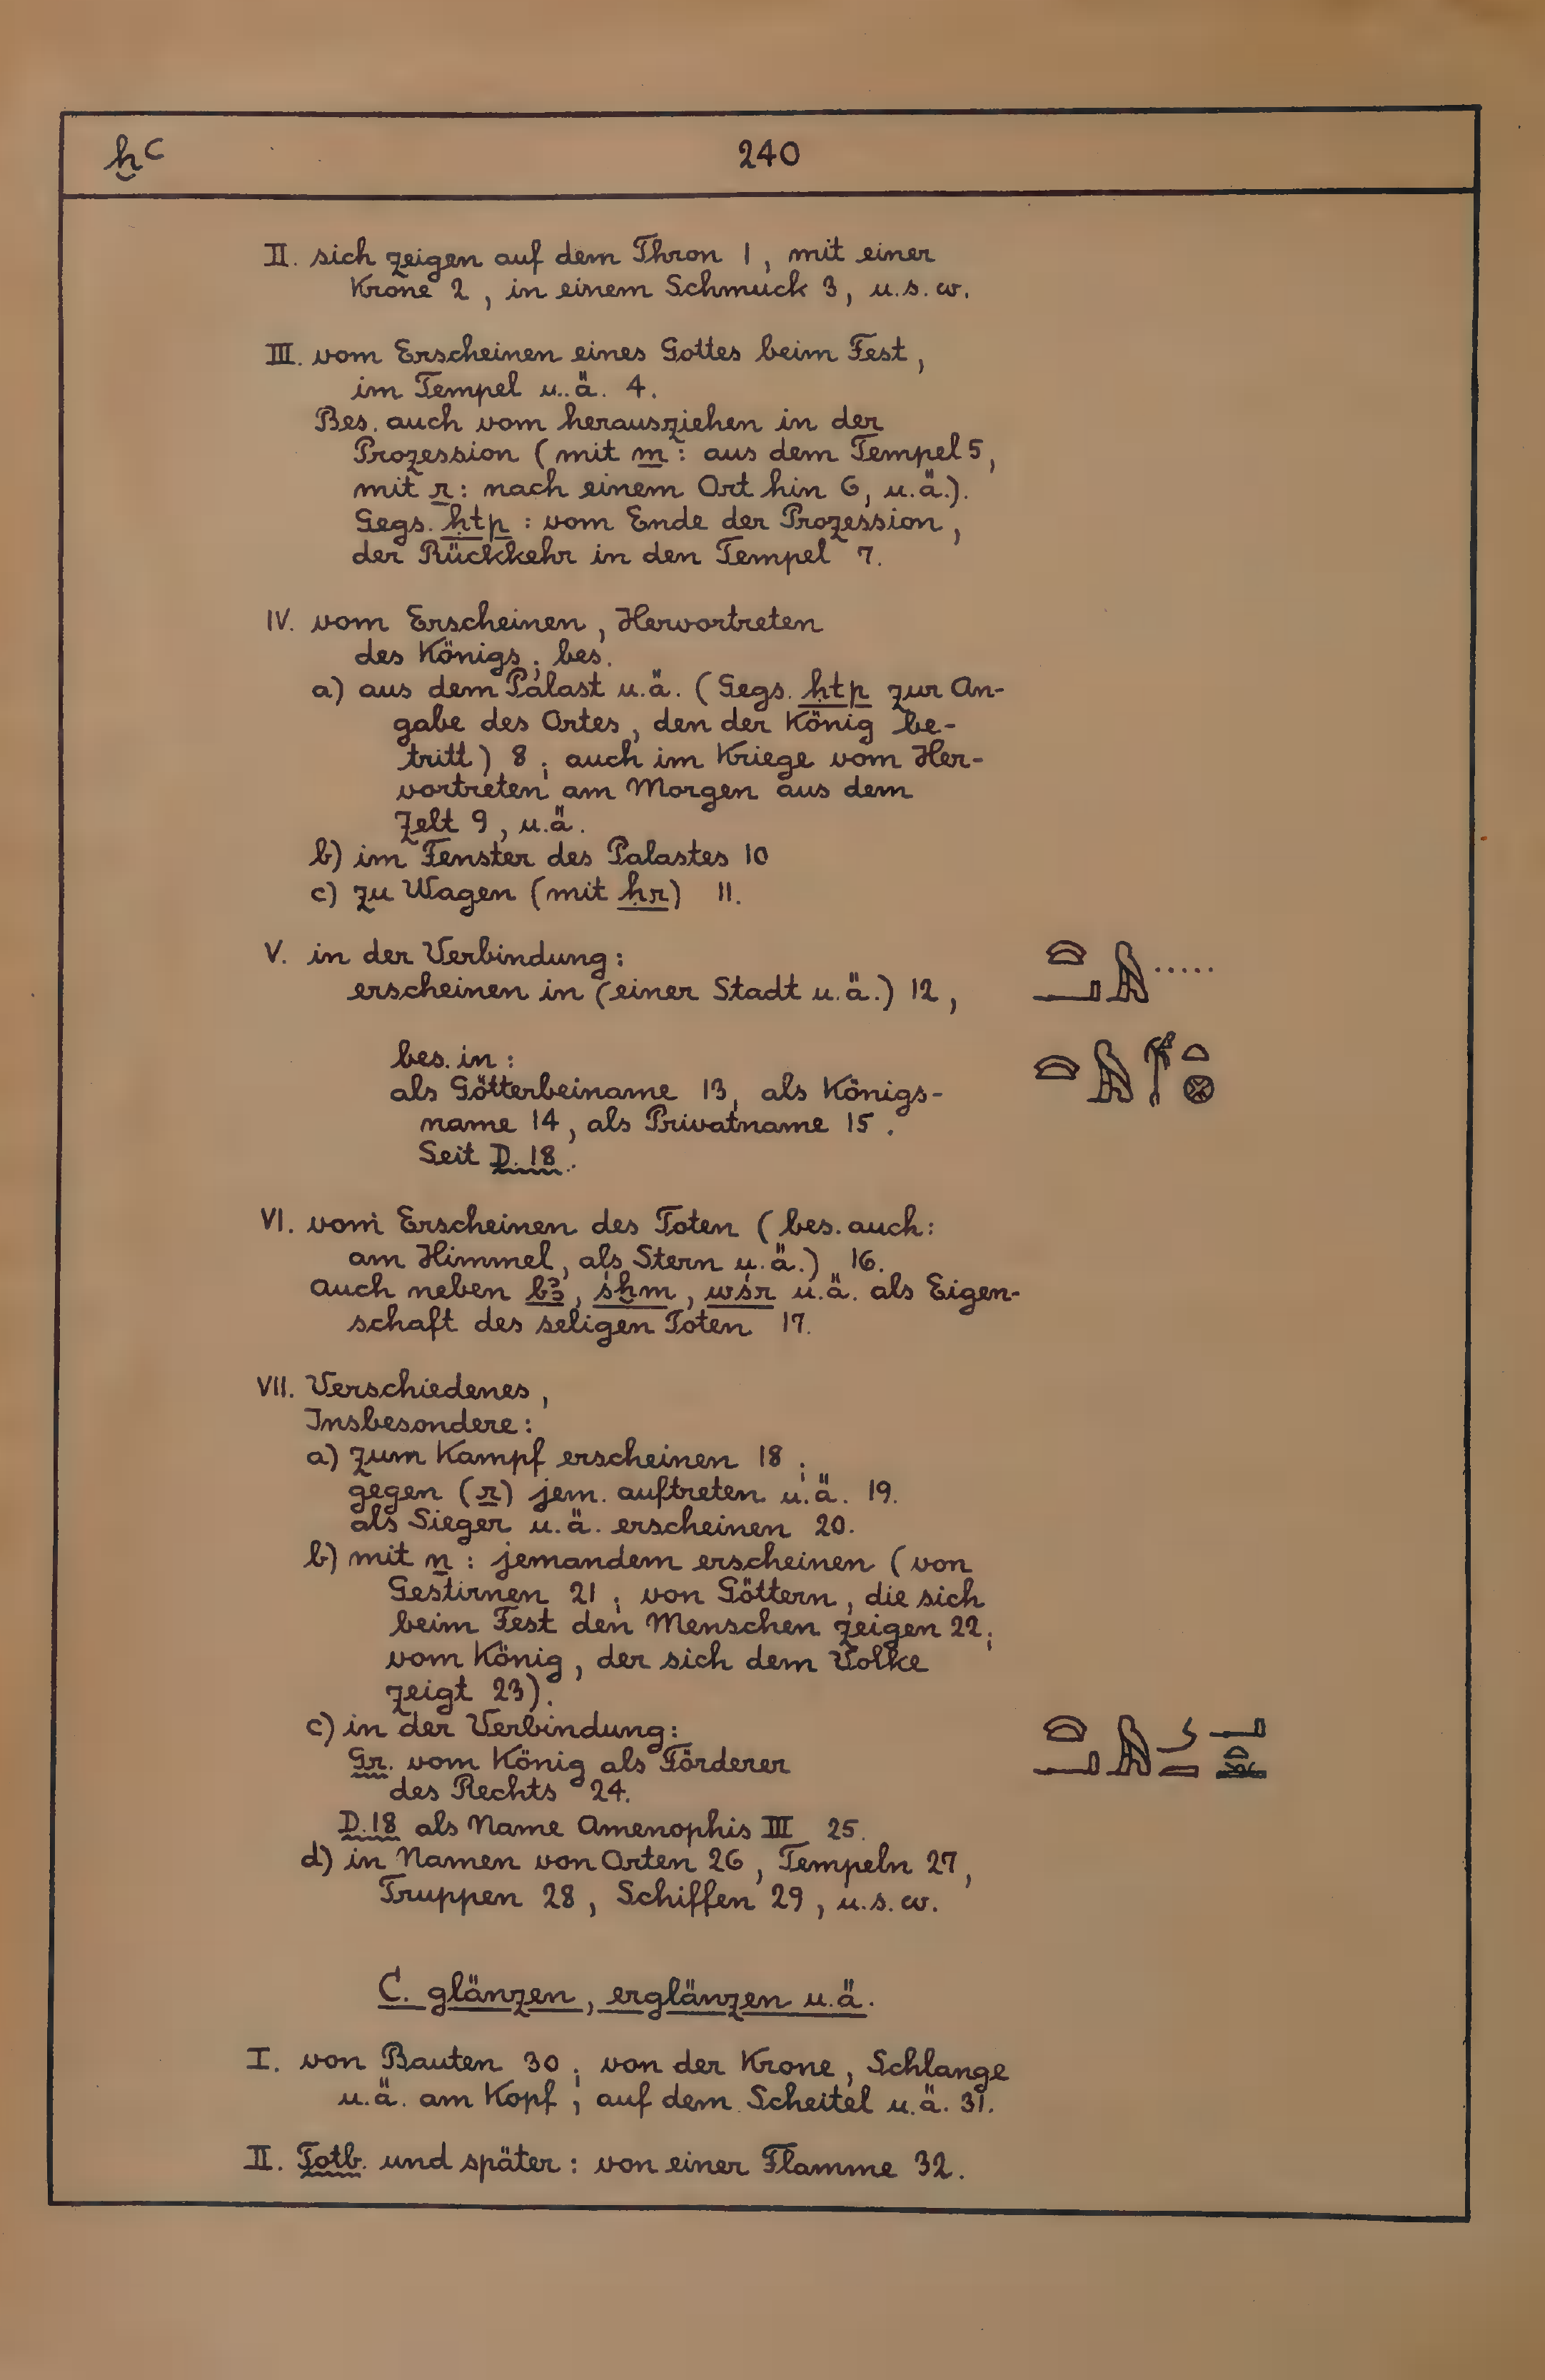 ḫꜥ
240
II. sich zeigen auf dem Thron 1, mit einer
Krone 2, in einem Schmuck 3, u.s.w.
III. vom Erscheinen eines Gottes beim Fest,
im Tempel u.ä. 4.
Bes. auch vom herausziehen in der
Prozession (mit m: aus dem Tempel 5,
mit r: nach einem Ort hin 6, u.ä.).
Gegs. ḥtp: vom Ende der Prozession,
der Rückkehr in den Tempel 7.
IV. vom Erscheinen, Hervortreten
des Königs; bes.
a) aus dem Palast u.ä. (Gegs. ḥtp zur An-
gabe des Ortes, den der König be-
tritt) 8; auch im Kriege vom Her-
vortreten am Morgen aus dem
Zelt 9, u.ä.
b) im Fenster des Palastes 10
c) zu Wagen (mit ḥr) 11.
V. in der Verbindung:
erscheinen in (einer Stadt u.ä.) 12,
bes. in:
als Götterbeiname 13, als Königs-
name 14, als Privatname 15.
Seit D. 18.
VI. vom Erscheinen des Toten (bes. auch:
am Himmel, als Stern u.ä.) 16.
Auch neben bꜣ, śḫm, wśr u.ä. als Eigen-
schaft des seligen Toten 17.
VII. Verschiedenes,
Insbesondere:
a) zum Kampf erscheinen 18;
gegen (r) jem. auftreten u.ä. 19.
als Sieger u.ä. erscheinen 20.
b) mit n: jemandem erscheinen (von
Gestirnen 21; von Göttern, die sich
beim Fest den Menschen zeigen 22;
vom König, der sich dem Volke
zeigt 23).
c) in der Verbindung:
Gr. vom König als Förderer
des Rechts 24.
D.18 als Name Amenophis III 25.
d) in Namen von Orten 26, Tempeln 27,
Truppen 28, Schiffen 29, u.s.w.
C. glänzen, erglänzen u.ä.
I. von Bauten 30; von der Krone, Schlange
u.ä. am Kopf; auf dem Scheitel u.ä. 31.
II. Totb. und später: von einer Flamme 32.